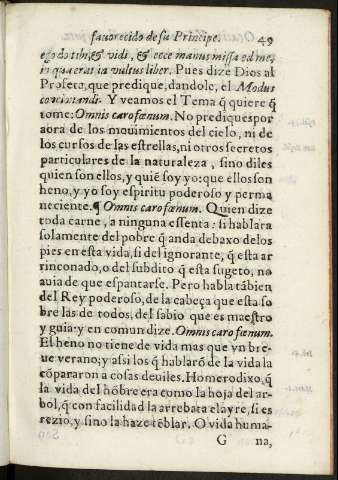 fauorecido de su Principe. 49
ego do tibi, & vidi, & ecce manus missa ad me,
in qua erat in vultus liber. Pues dize Dios al
Profeta, que predique, dandole, el Modus
concionandi. Y veamos el Tema q̃ quiere q̃
tome: Omnis caro fœnum. No prediques por
aora de los mouimientos del cielo, ni de
los cursos de las estrellas, ni otros secretos
particulares de la naturaleza, sino diles
quien son ellos, y quiẽ soy yo: que ellos son
heno, y yo soy espiritu poderoso y perma
neciente. ¶ Omnis caro fœnum. Quien dize
toda carne, a ninguna essenta: si hablara
solamente del pobre q̃ anda debaxo de los
pies en esta vida, si del ignorante, q̃ esta ar
rinconado, o del subdito q̃ esta sugeto, no
auia de que espantarse. Pero habla tãbien
del Rey poderoso, de la cabeça que esta so
bre las de todos, del sabio que es maestro
y guia: y en comun dize. Omnis caro fœnum.
El heno no tiene de vida mas que vn bre-
ue verano; y assi los q̃ hablarõ de la vida la
cõpararon a cosas deuiles. Homero dixo, q̃
la vida del hõbre era como la hoja del ar-
bol, q̃ con facilidad la arrebata el ayre, si es
rezio, y sino la haze tẽblar. O vida huma-
G na,